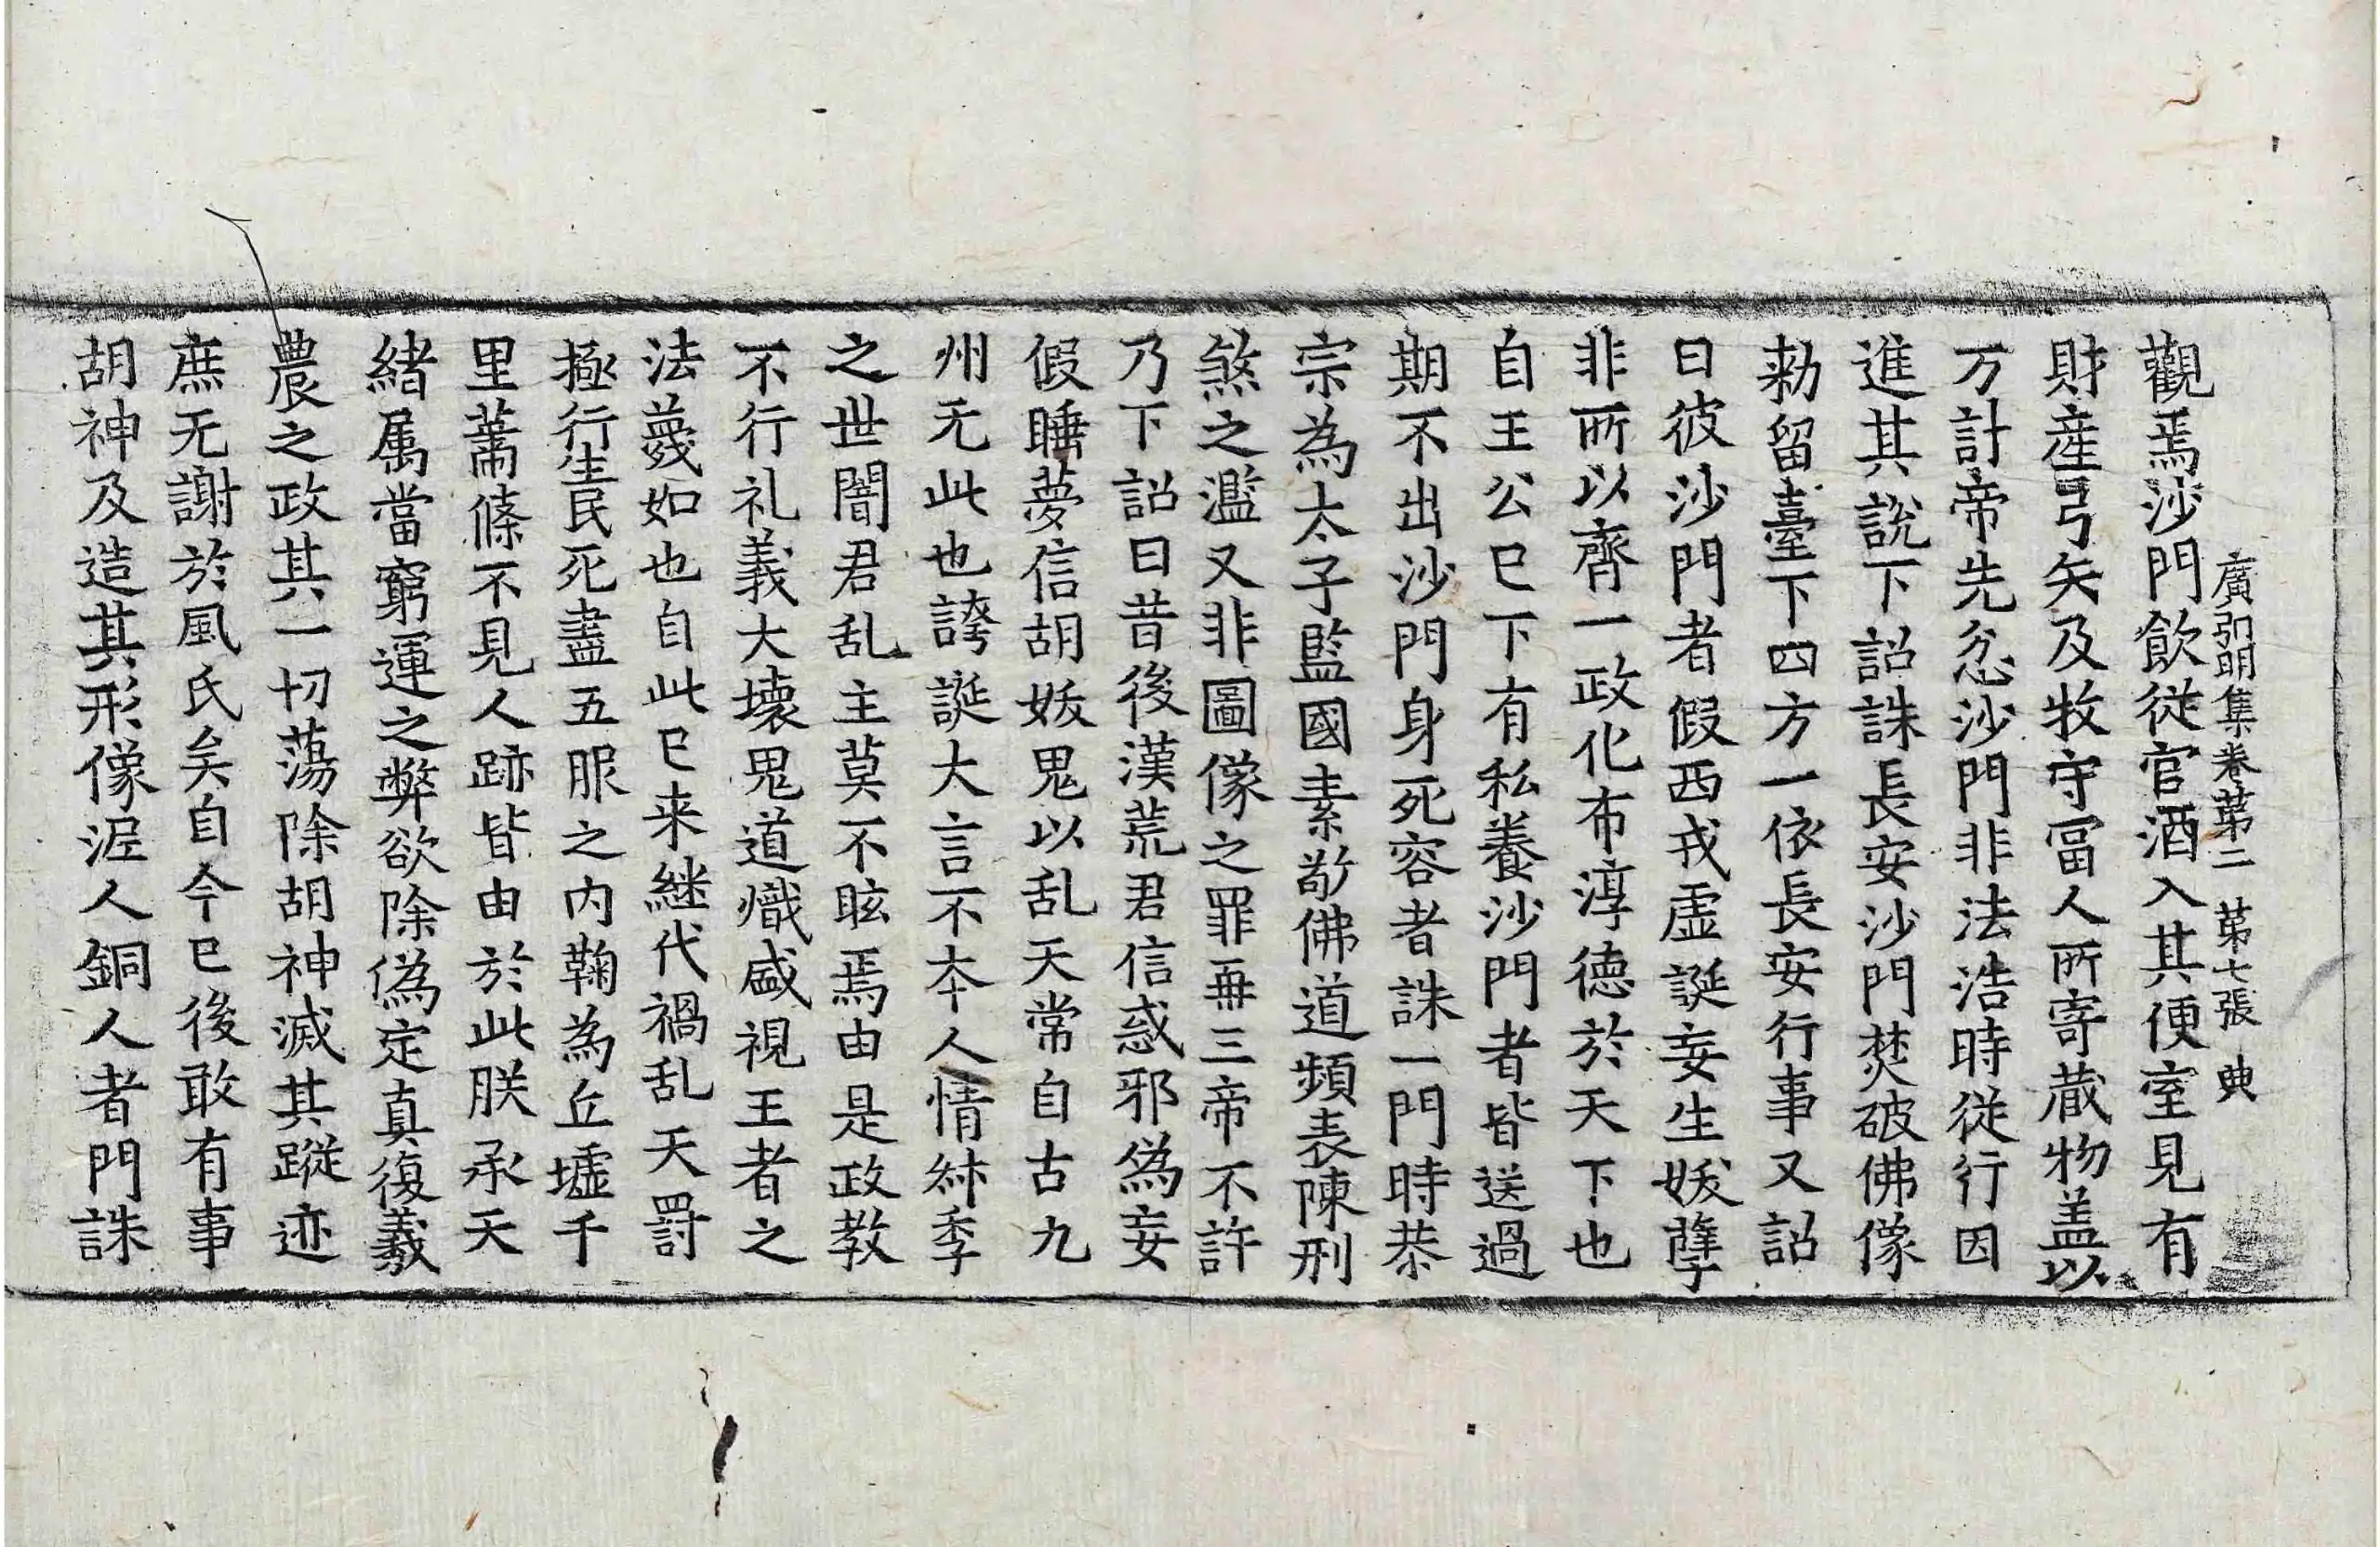 廣弘明集卷苐二 苐七張 典
觀焉沙門飲從官酒入其便室見有
財産弓矢及牧守冨人所寄蔵物盖以
万計帝先忿沙門非法浩時從行因
進其說下詔誅長安沙門焚破佛像
勑留臺下四方一依長安行事又詔
曰彼沙門者假西戎虚誕妄生妖孽
非所以齊一政化布淳德於天下也
自王公已下有私養沙門者皆送過
期不出沙門身死容者誅一門時恭
宗為太子監國素敬佛道頻表陳刑
煞之濫又非圖像之罪再三帝不許
乃下詔曰昔後漢荒君信惑邪偽妄
假睡夢信胡妖鬼以乱天常自古九
州无此也誇誕大言不夲人情叔季
之世闇君乱主莫不眩焉由是政教
不行礼義大壞鬼道熾盛視王者之
法蔑如也自此已来継代禍乱天罸
極行生民死盡五服之内鞠為丘墟千
里蕭條不見人跡皆由於此朕承天
緒属當窮運之弊欲除偽定真復羲
農之政其一切蕩除胡神滅其蹤迹
庶无謝於風氏矣自今已後敢有事
胡神及造其形像泥人銅人者門誅